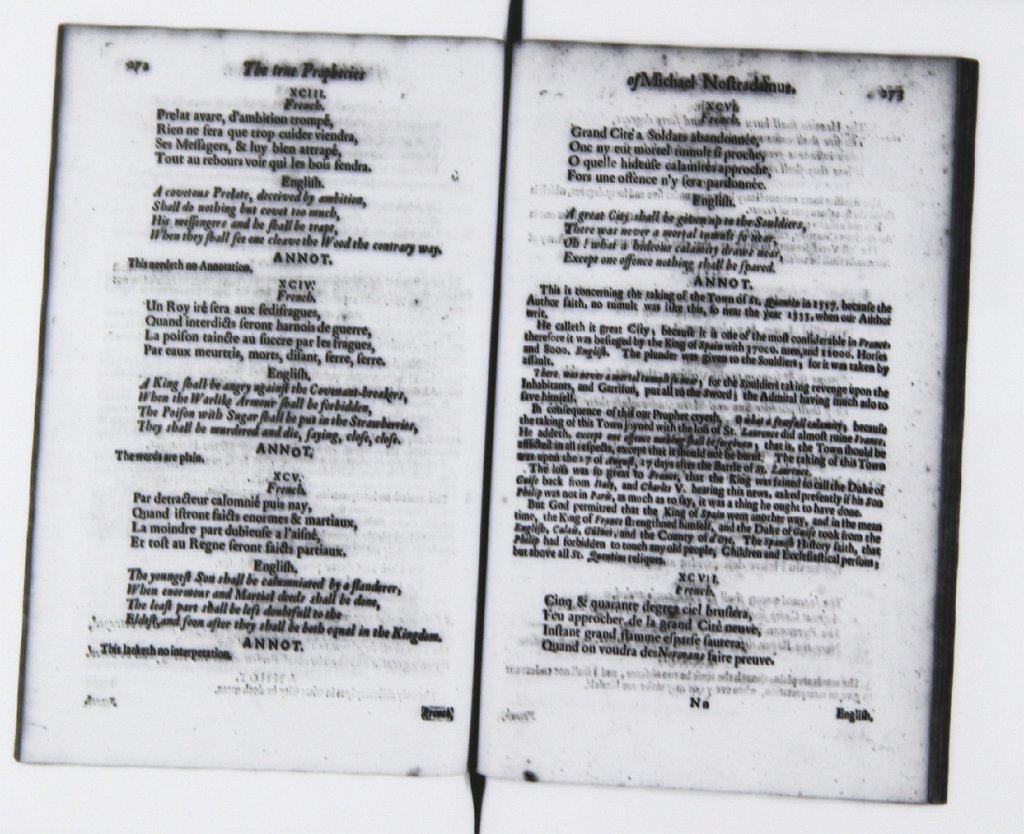 272
The true Prophecies
XCIII.
French.
Prelat avare, d'ambition trompé,
Rien ne ſera que trop cuider viendra,
Ses Meſſagers, & luy bien attrapé,
Tout au rebours voir qui les bois fendra.
Engliſh.
A covetous Prelate, deceived by ambition,
Shall do nothing but covet too much,
His meſſengers and he ſhall be trapt,
When they ſhall ſee one cleave the Wood the contrary way.
ANNOT.
This needeth no Annotation.
XCIV.
French.
Un Roy iré ſera aux ſedifragues,
Quand interdicts ſeront harnois de guerre,
La poiſon taincte au ſuccre par les fragues,
Par eaux meurtris, morts, diſant, ſerre, ſerre.
Engliſh.
A King ſhall be angry againſt the Covenant-breakers,
When the Warlike Armour ſhall be forbidden,
The Poiſon with Sugar ſhall be put in the Strawberries,
They ſhall be murdered and die, ſaying, cloſe, cloſe.
ANNOT.
The words are plain.
XCV.
French.
Par detracteur calomnié puis nay,
Quand iſtront faicts enormes & martiaux,
La moindre part dubieuſe a l'aiſné,
Et toſt au Regne ſeront faicts partiaux.
Engliſh.
The youngeſt Son ſhall be calumniated by a ſlanderer,
When enormous and Martial deeds ſhall be done,
The leaſt part ſhall be left doubtfull to the
Eldeſt, and ſoon after they ſhall be both equal in the Kingdom.
ANNOT.
This lacketh no interpretation.
French
of Michael Noſtradamus.
273
XCVI.
French.
Grand Cité a Soldats abandonnée,
Onc ny eut mortel tumult ſi proche,
O quelle hideuſe calamité approche,
Fors une offence n'y ſera pardonnée.
Engliſh.
A great City ſhall be given up to the Souldiers,
There was never a mortal tumult ſo near,
Oh! what a hideous calamity draws near,
Except one offence nothing ſhall be ſpared.
ANNOT.
This is concerning the taking of the Town of St. Quintin in 1557. becauſe the
Author ſaith, no tumult was like this, ſo near the year 1555. when our Author
writ.
He calleth it great City, becauſe it is one of the moſt conſiderable in France,
therefore it was beſieged by the King of Spain with 37000. men, and Horſes
and 8000. Engliſh. The plunder was given to the Souldiers; for it was taken by
aſſault.
There was never a mortal tumult ſo near; for the Souldiers taking revenge upon the
Inhabitants, and Garriſon, put all to the Sword; the Admiral having much ado to
ſave himſelf.
In conſequence of this our Prophet cryeth, O what a fearfull calamity, becauſe
the taking of this Town joyned with the loſs of St. Laurence did almoſt ruine France.
He addeth, except one offence nothing ſhall be forgiven, that is, the Town ſhould be
afflicted in all reſpects, except that it ſhould not be burnt. The taking of this Town
was upon the 27 of Auguſt, 17 days after the Battle of St. Laurence.
The loſs was ſo great to France, that the King was fained to call the Duke of
Guiſe back from Italy, and Charles V. hearing this news, asked preſently if his Son
Philip was not in Paris, as much as to ſay, it was a thing he ought to have done.
But God permitted that the King of Spain went another way, and in the mean
time, the King of France ſtrengthned himſelf, and the Duke of Guiſe took from the
Engliſh, Calais, Guines, and the County of d'Oye. The Spaniſh Hiſtory ſaith, that
Philip had forbidden to touch any old people, Children and Eccleſiaſtical perſons;
but above all St. Quentins reliques.
XCVII.
French.
Cinq & quarante degrez ciel bruſlera,
Feu approcher de la grand Cité neuve,
Inſtant grand flamme eſparſe ſautera,
Quand on voudra des Normans faire preuve.
Nn
Engliſh.